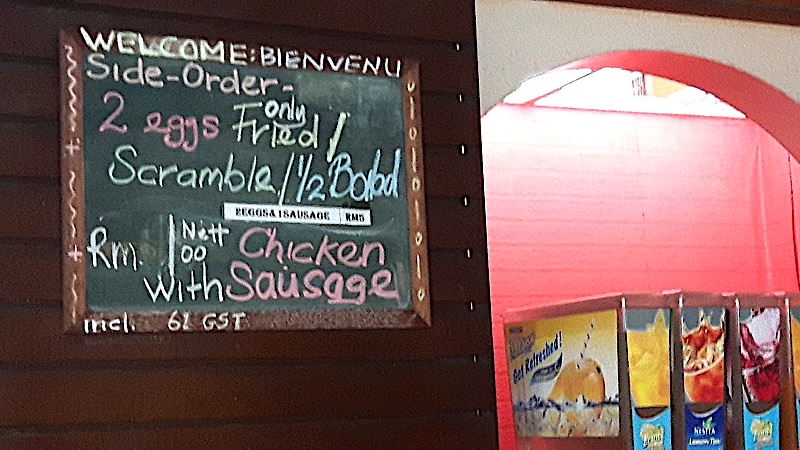 WELCOME:BIENVENU
Side-Order-
2 eggs Fried only/
Scramble/½ Boiled
2EGGS&1SAUSAGE RM5
Rm. Nett 00 Chicken
With Sausage
incl. 6% GST
Get Refreshed!
NESTEA